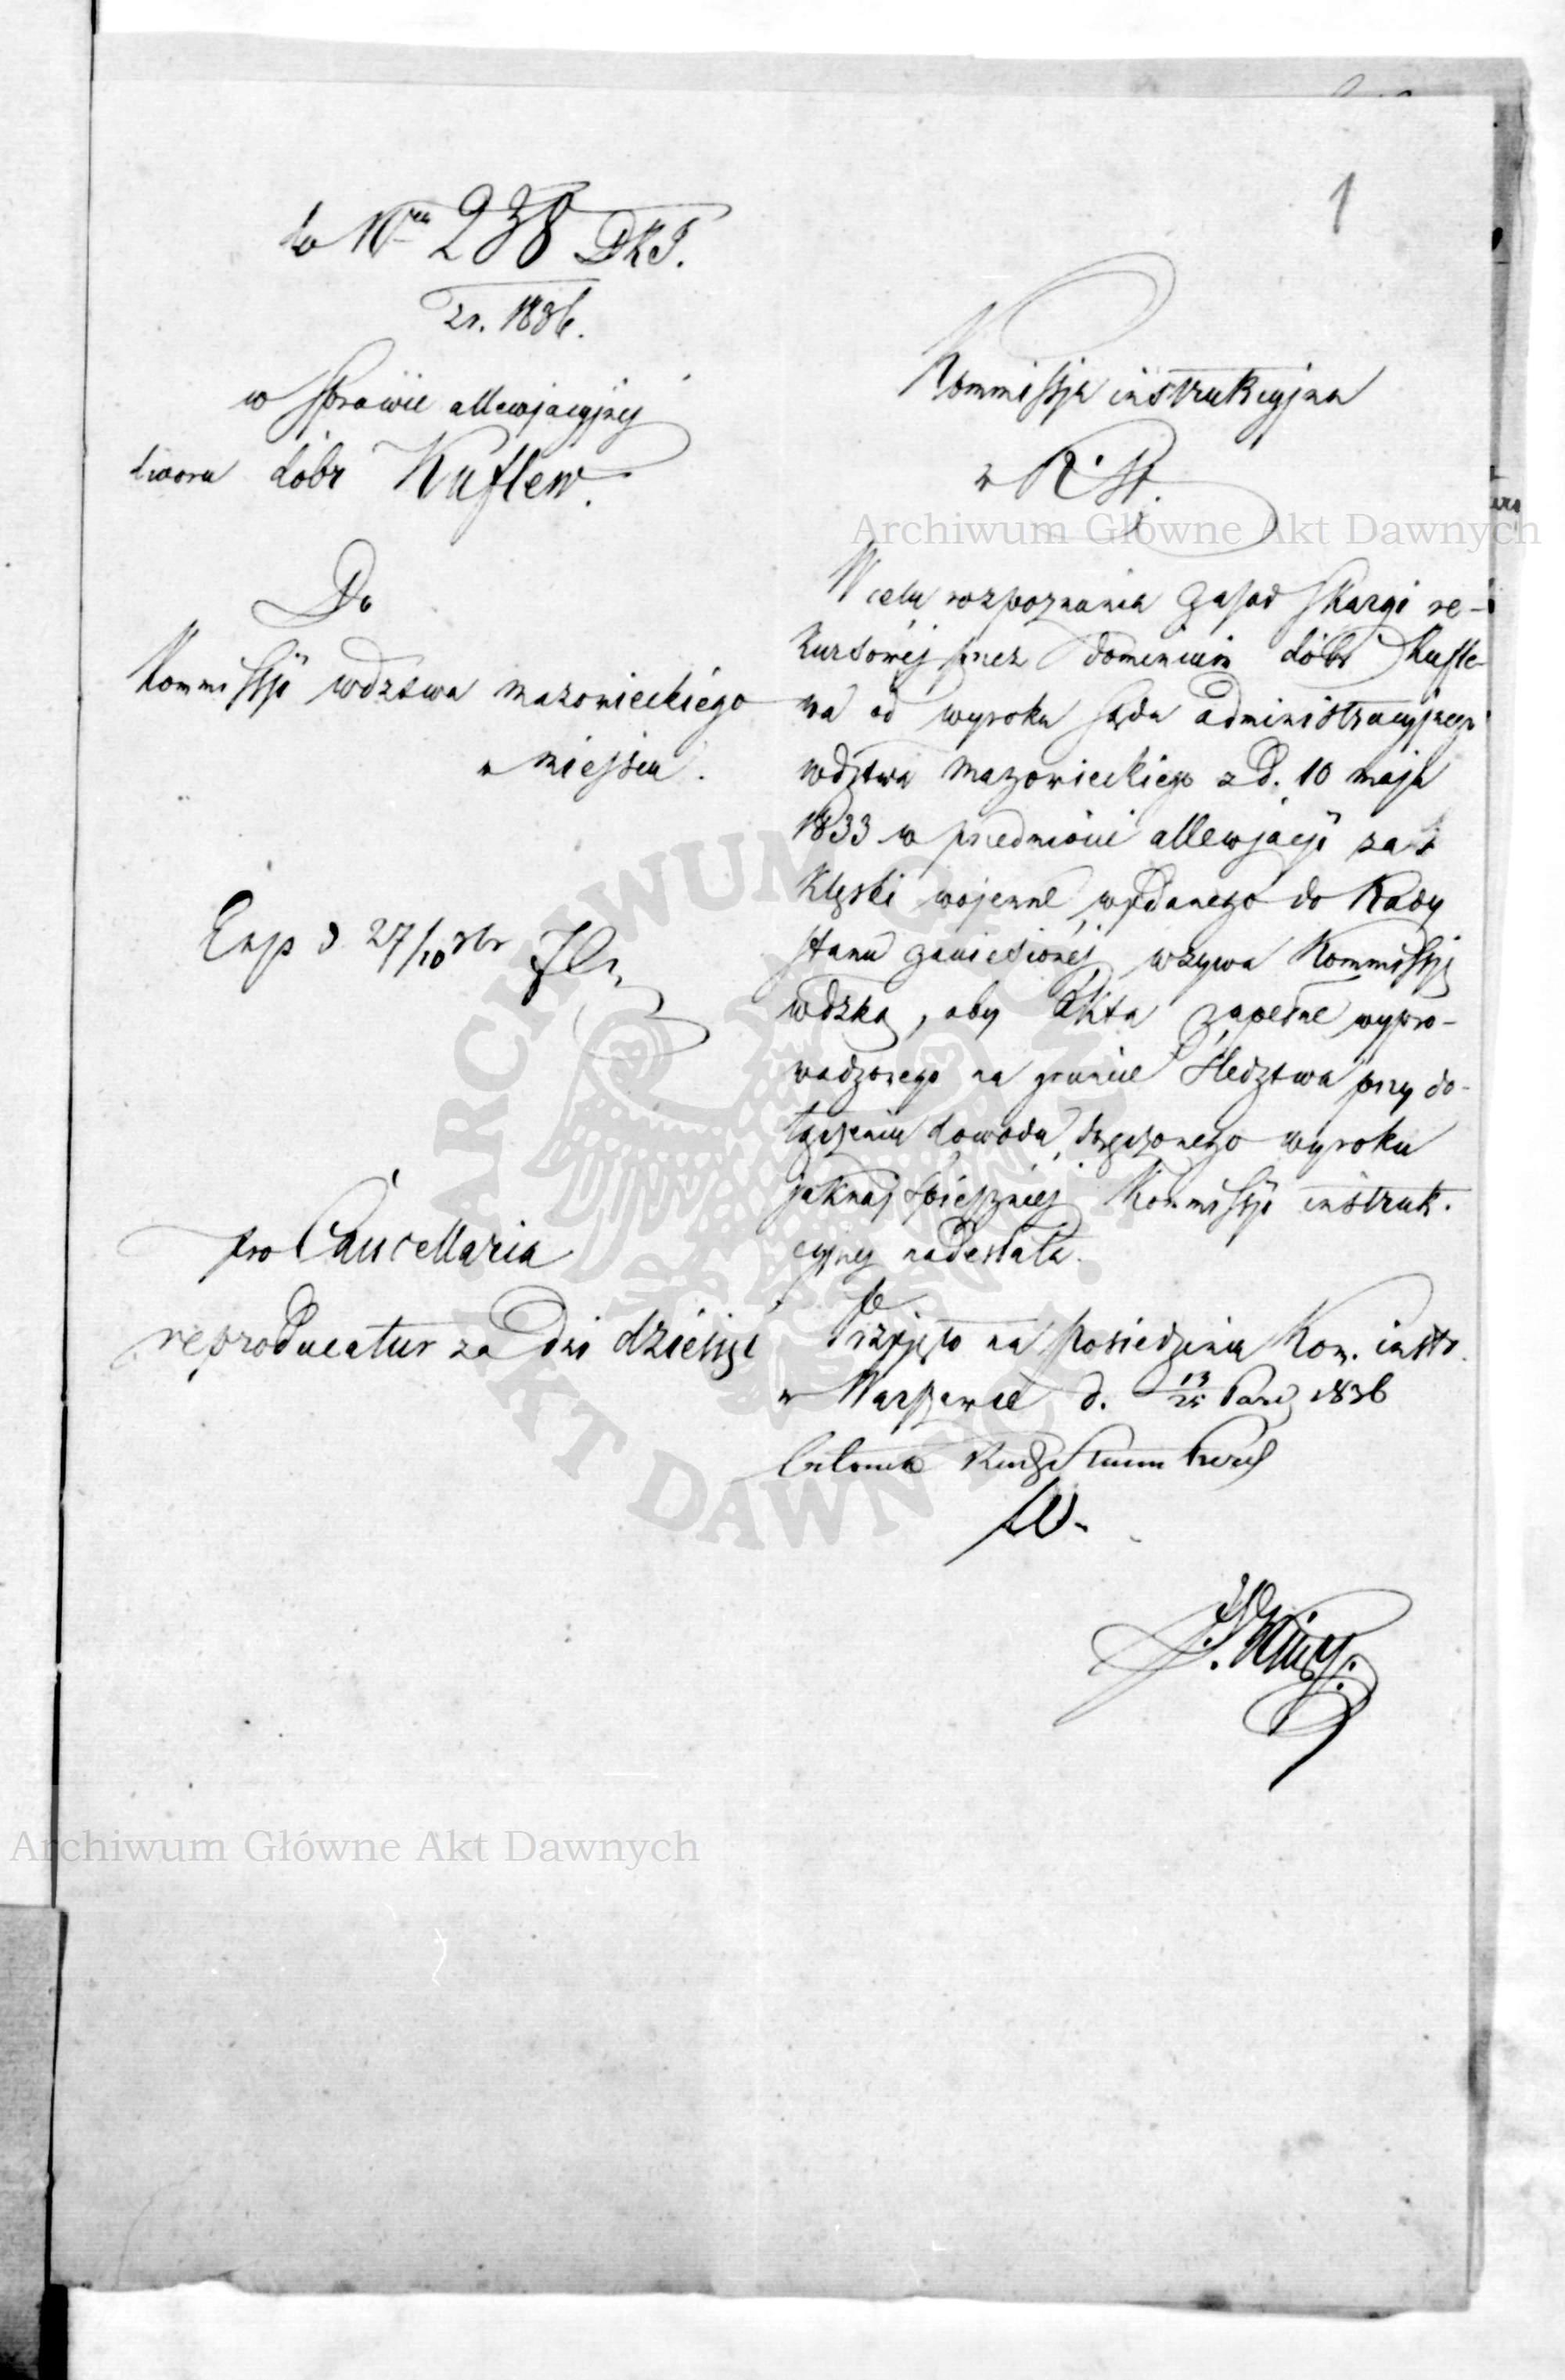 1
do Nra 238 DKJ.
z r. 1836.
w sprawie allewjacyjnej
dworu dóbr Kuflew.
Do
Kommissji wdztwa mazowieckiego
w miejscu.
Exp d 27/10
pro Cancellaria
reproducatur za dni dziesięć
Kommissja instrukcyjna
w R. St.
W celu rozpoznania zasad skargi re-
kursowej przez dominium dóbr Kufle-
wa od wyroku sądu administracyjnego
wdztwa mazowieckiego z d. 10 maja
1833 w przedmiocie allewjacji za
klęski wojenne wydanego do Rady
stanu zaniesionej wzywa Kommissję
wdzką, aby akta zupełne wypro-
wadzonego na gruncie śledztwa przy do-
łączeniu dowodu doręczonego wyroku
jaknajspieszniej Kommissji instruk-
cyjnej nadesłała.
Przyjęto na posiedzeniu Kom. instr.
w Warszawie d. 13/25 Paźd 1836
Członek Rady Stanu
Archiwum Główne Akt Dawnych
ARCHIWUM GŁÓWNE AKT DAWNYCH
Archiwum Główne Akt Dawnych